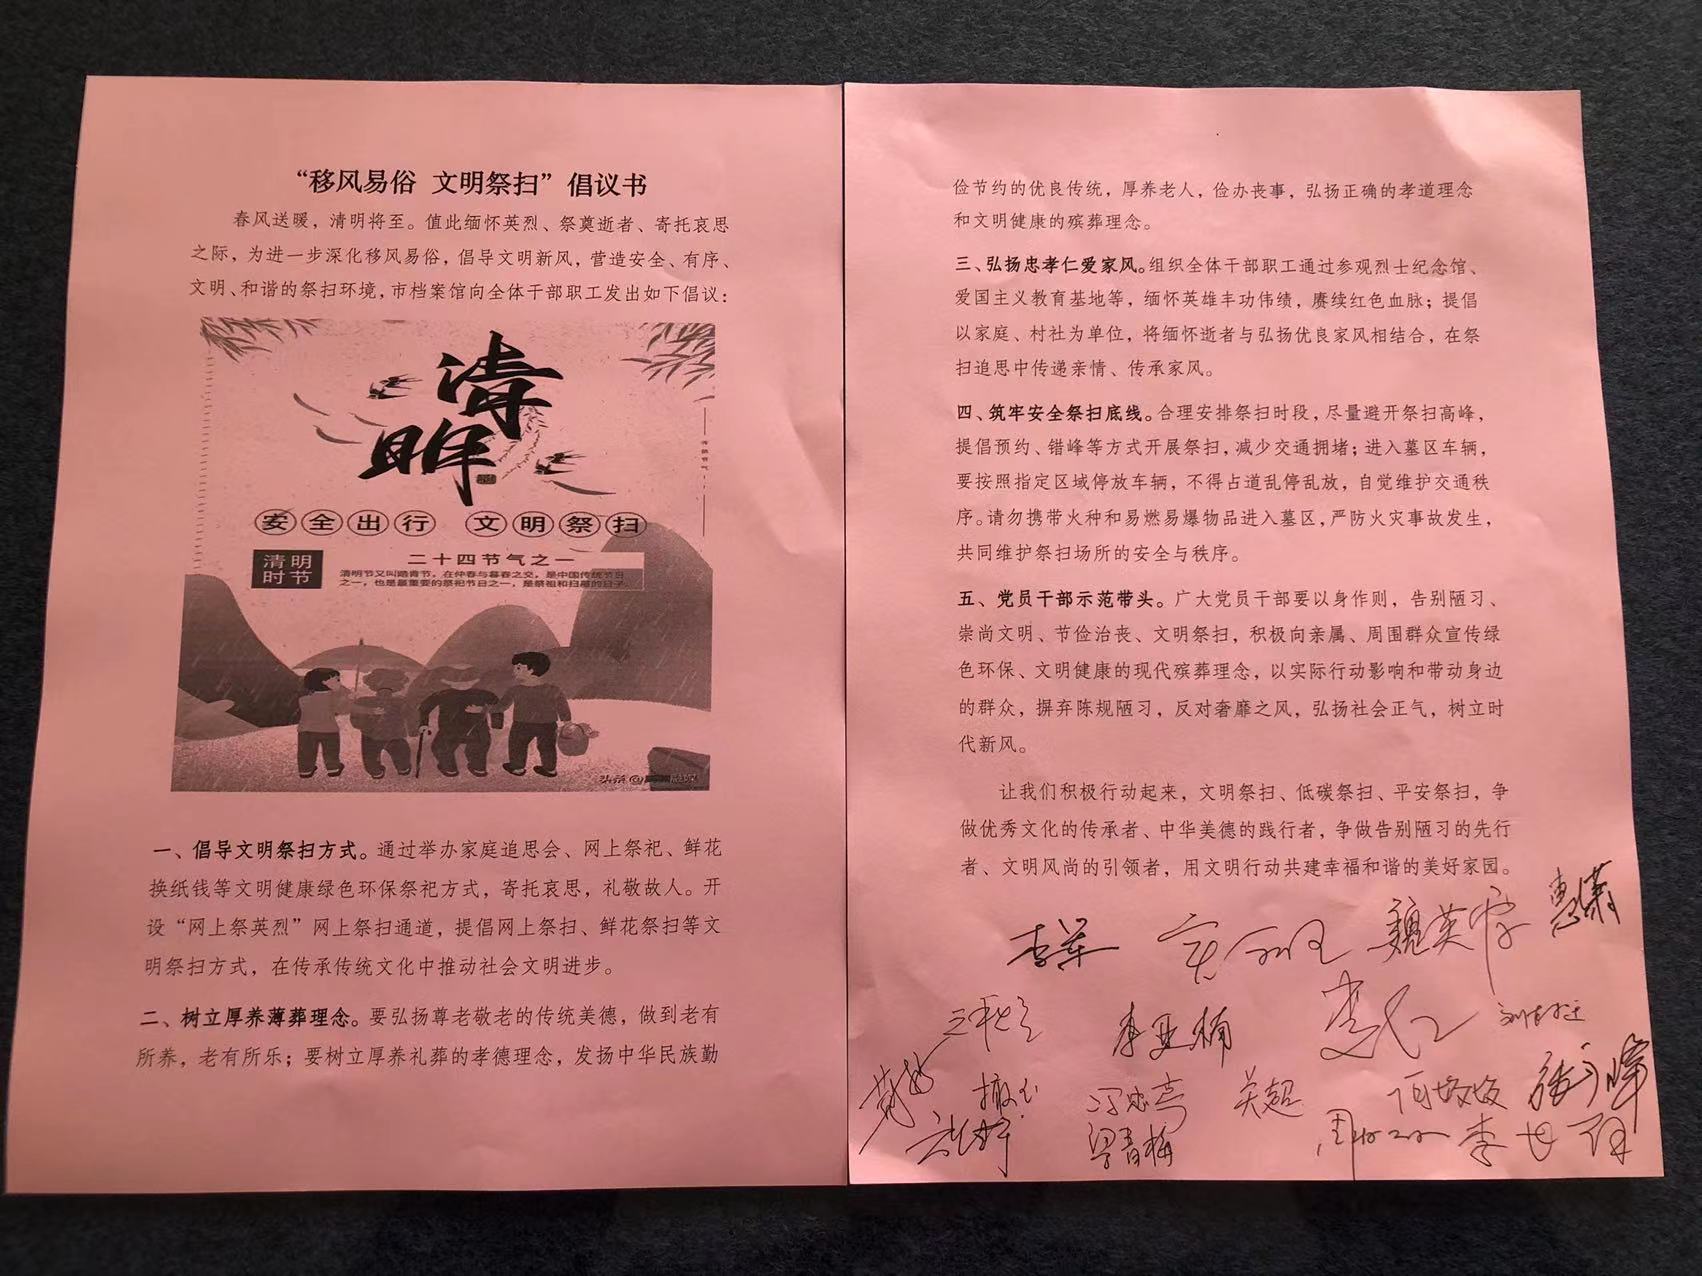 “移风易俗 文明祭扫”倡议书
春风送暖，清明将至。值此缅怀英烈、祭奠逝者、寄托哀思
之际，为进一步深化移风易俗，倡导文明新风，营造安全、有序、
文明、和谐的祭扫环境，市档案馆向全体干部职工发出如下倡议：
清明
安全出行 文明祭扫
清明
时节
二十四节气之一
清明节又叫踏青节，在仲春与暮春之交，是中国传统节日
之一，也是最重要的祭祀节日之一，是祭祖和扫墓的日子。
头条@
一、倡导文明祭扫方式。通过举办家庭追思会、网上祭祀、鲜花
换纸钱等文明健康绿色环保祭祀方式，寄托哀思，礼敬故人。开
设“网上祭英烈”网上祭扫通道，提倡网上祭扫、鲜花祭扫等文
明祭扫方式，在传承传统文化中推动社会文明进步。
二、树立厚养薄葬理念。要弘扬尊老敬老的传统美德，做到老有
所养，老有所乐；要树立厚养礼葬的孝德理念，发扬中华民族勤
俭节约的优良传统，厚养老人，俭办丧事，弘扬正确的孝道理念
和文明健康的殡葬理念。
三、弘扬忠孝仁爱家风。组织全体干部职工通过参观烈士纪念馆、
爱国主义教育基地等，缅怀英雄丰功伟绩，赓续红色血脉；提倡
以家庭、村社为单位，将缅怀逝者与弘扬优良家风相结合，在祭
扫追思中传递亲情、传承家风。
四、筑牢安全祭扫底线。合理安排祭扫时段，尽量避开祭扫高峰，
提倡预约、错峰等方式开展祭扫，减少交通拥堵；进入墓区车辆，
要按照指定区域停放车辆，不得占道乱停乱放，自觉维护交通秩
序。请勿携带火种和易燃易爆物品进入墓区，严防火灾事故发生，
共同维护祭扫场所的安全与秩序。
五、党员干部示范带头。广大党员干部要以身作则，告别陋习、
崇尚文明、节俭治丧、文明祭扫，积极向亲属、周围群众宣传绿
色环保、文明健康的现代殡葬理念，以实际行动影响和带动身边
的群众，摒弃陈规陋习，反对奢靡之风，弘扬社会正气，树立时
代新风。
让我们积极行动起来，文明祭扫、低碳祭扫、平安祭扫，争
做优秀文化的传承者、中华美德的践行者，争做告别陋习的先行
者、文明风尚的引领者，用文明行动共建幸福和谐的美好家园。
李军
李亚楠
冯忠亮 关超
梁青梅